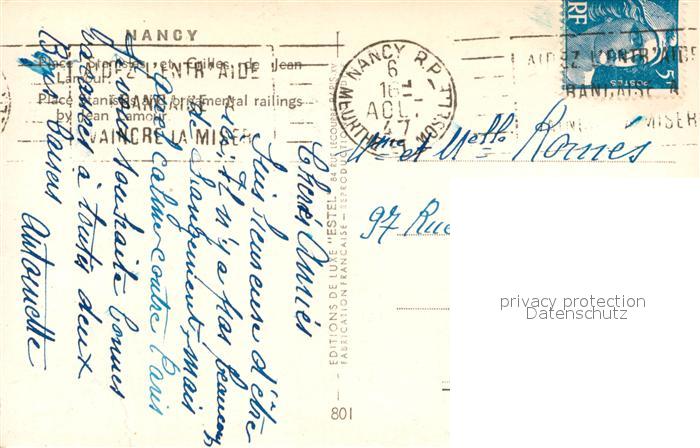 NANCY
Place Stanislas et Grilles de Jean
Lamour.
Place Stanislas and ornemental railings
by Jean Lamour.
AIDEZ L'ENTR'AIDE
FRANÇAISE A
VAINCRE LA MISERE
NANCY R.P.
6
16
AOU
47
MEURTHE-ET-MOSELLE
AIDEZ L'ENTR'AIDE
FRANÇAISE A
VAINCRE LA MISERE
RF
5F
POSTES
Mme et Melle Romés
97 Rue
EDITIONS DE LUXE "ESTEL"
FABRICATION FRANÇAISE - REPRODUCTION
801
Chères Amies
Suis heureuse d'être
ici, il n'y a pas beaucoup
de changement, mais
assez calme contre Paris
Je vous souhaite bonnes
vacances à toutes deux
Bons baisers
Antoinette
privacy protection
Datenschutz